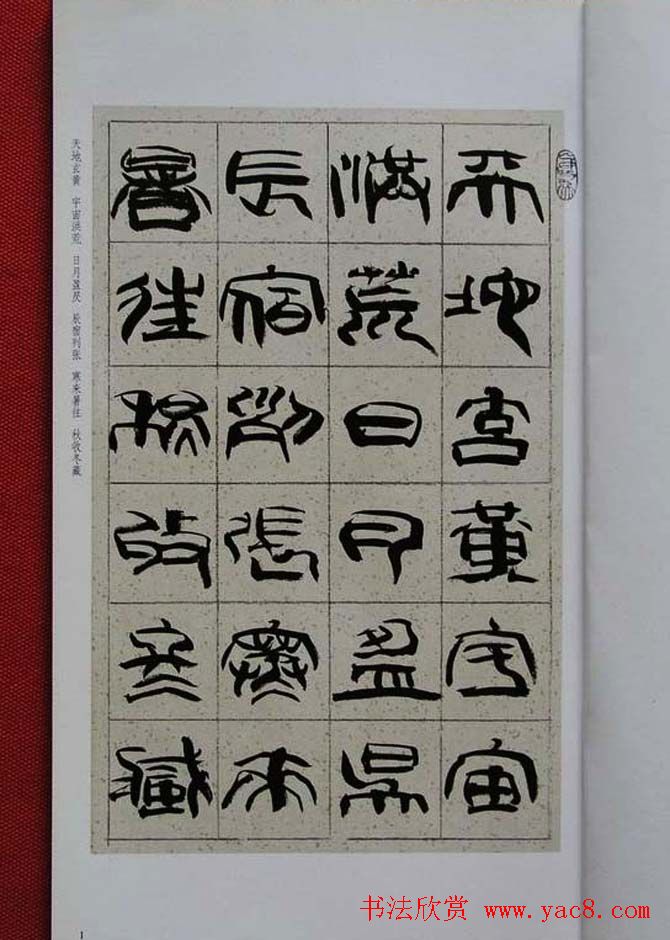 天地玄黃宇宙
洪荒日月盈昃
辰宿列張寒來
暑往秋收冬藏
天地玄黄 宇宙洪荒 日月盈昃 辰宿列张 寒来暑往 秋收冬藏
1
书法欣赏 www.yac8.com